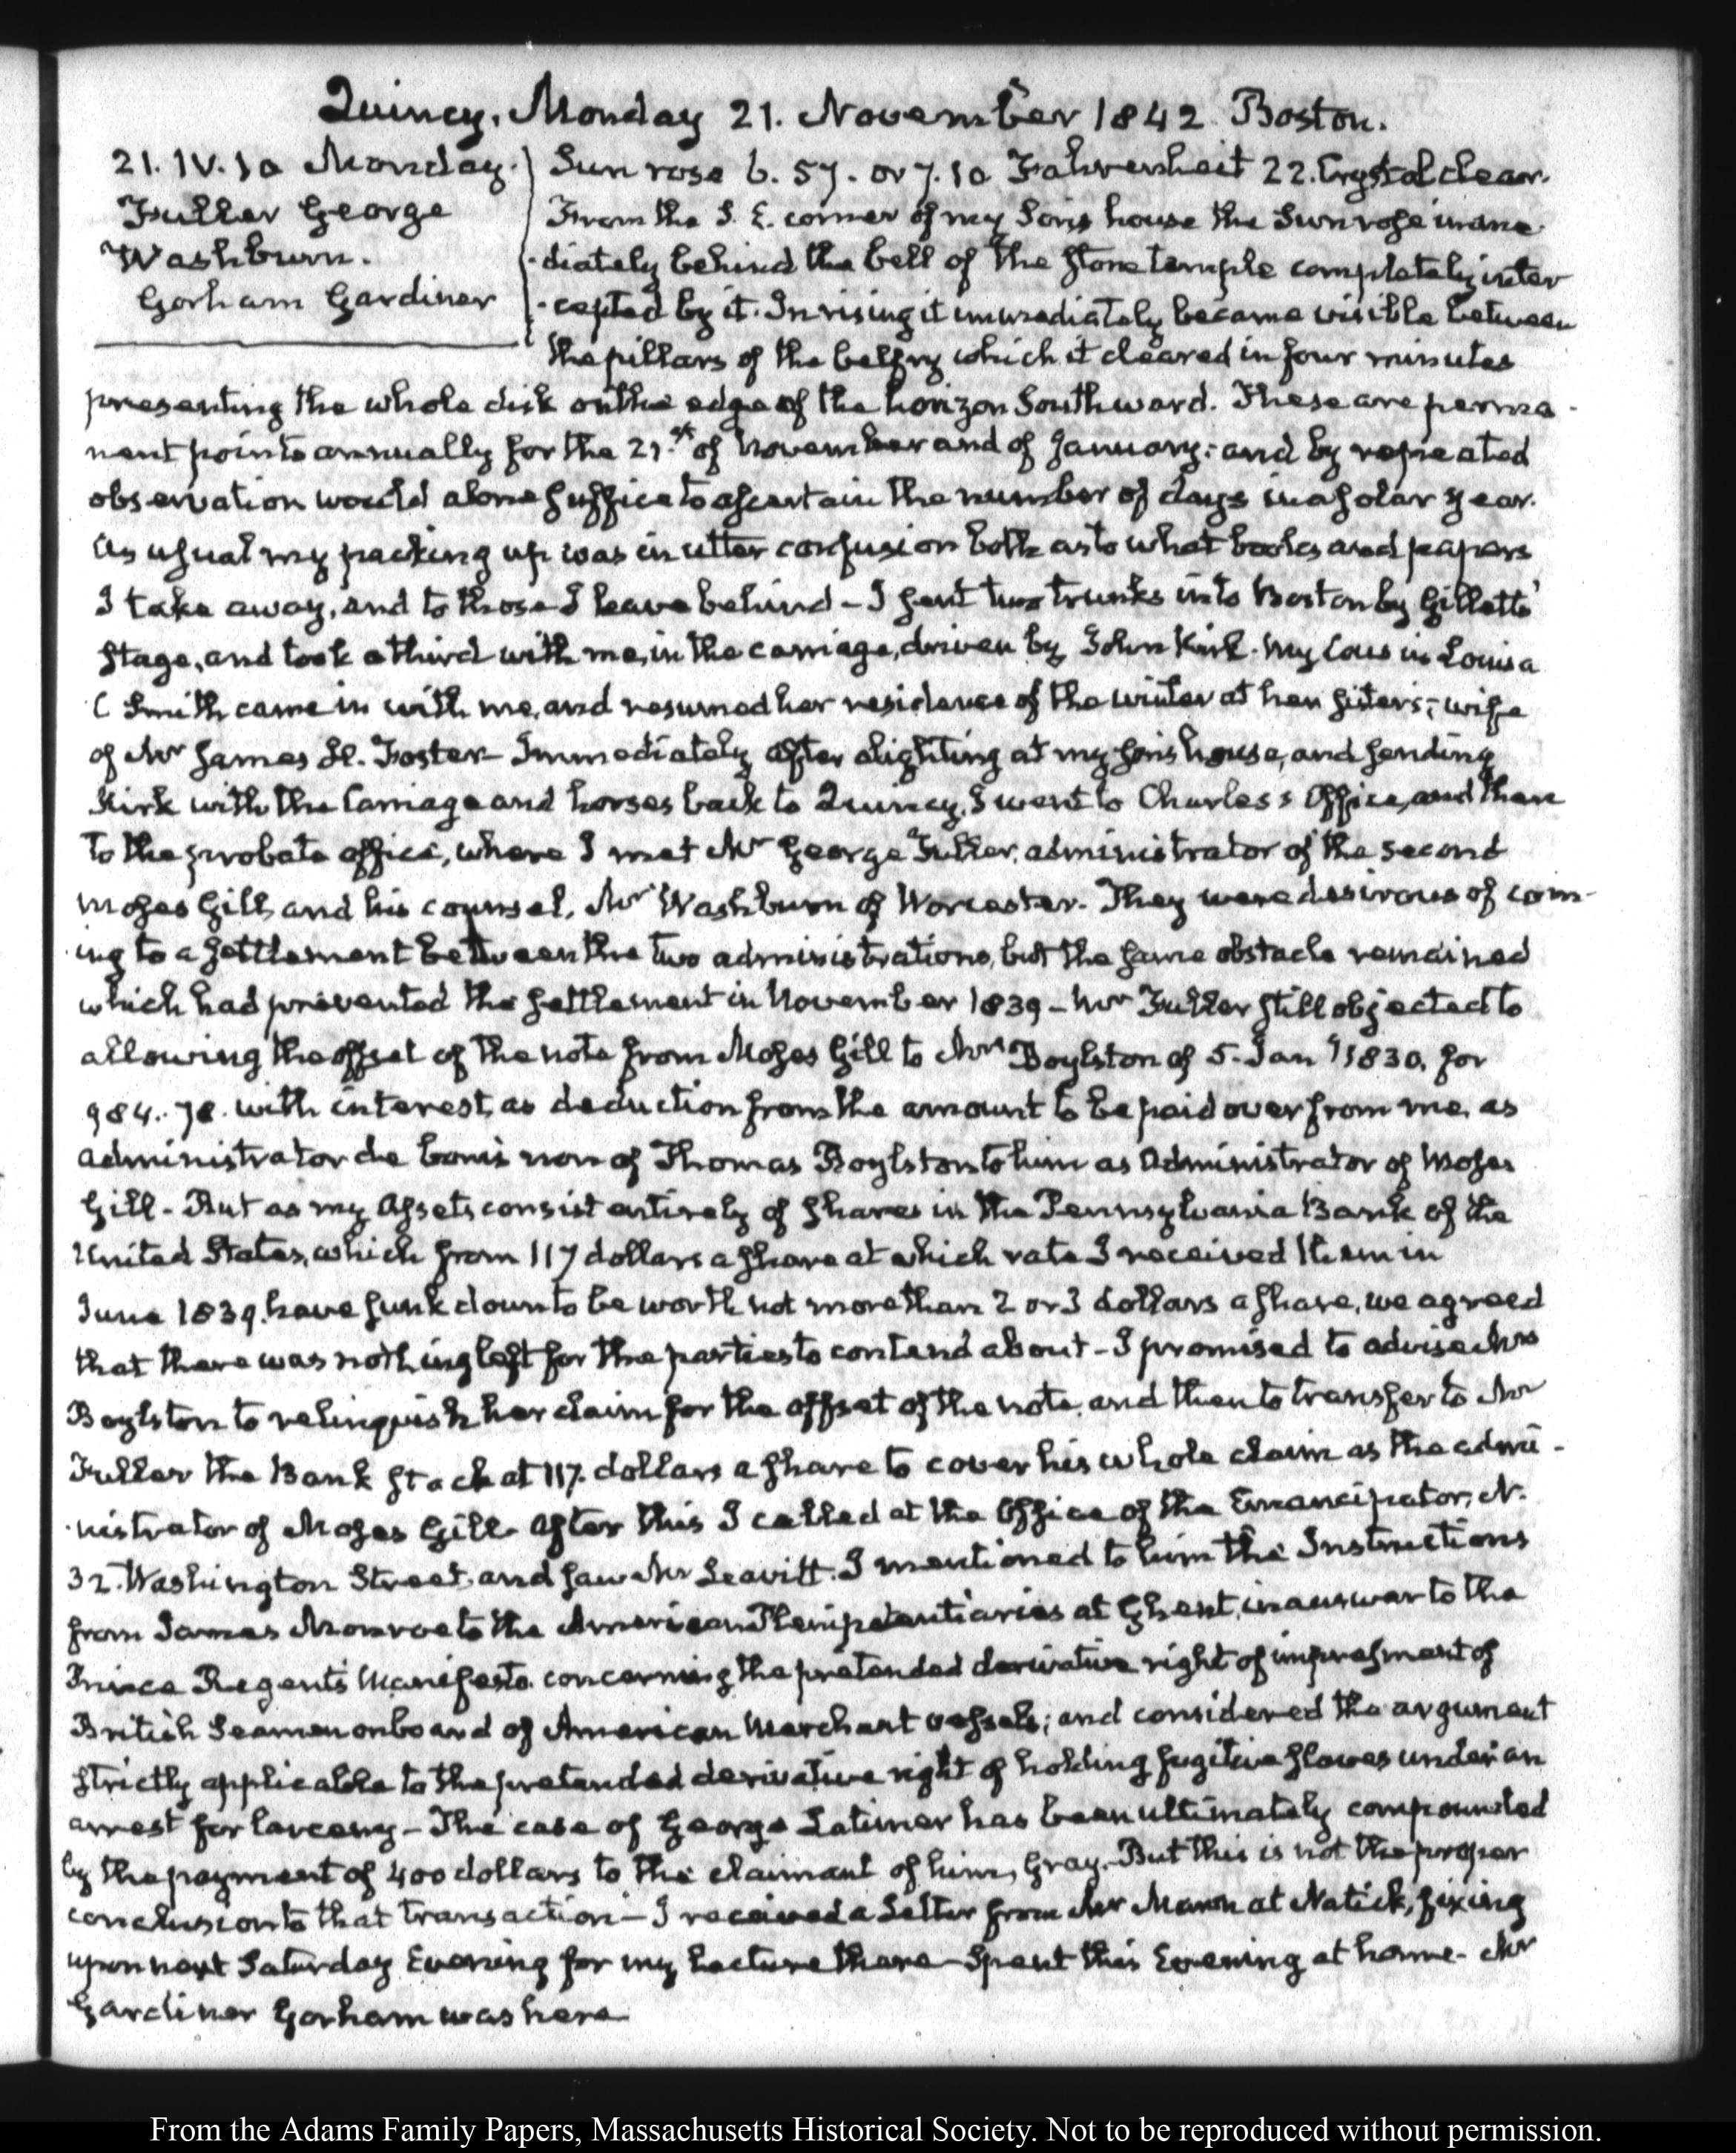 Quincy, Monday 21. November 1842. Boston.
21. IV. 10 Monday.
Fuller George
Washburn.
Gorham Gardiner
Sun rose 6. 57. or 7. 10 Fahrenheit 22. Crystal clear.
From the S. E. corner of my Son's house the Sun rose imme-
-diately behind the bell of the stone temple completely inter
-cepted by it. In rising it immediately became visible between
the pillars of the belfry which it cleared in four minutes
presenting the whole disk on the edge of the horizon Southward. These are perma-
nent points annually for the 21.st of November and of January; and by repeated
observation would alone suffice to ascertain the number of days in a solar year.
As usual my packing up was in utter confusion both as to what books and papers
I take away, and to those I leave behind - I sent two trunks into Boston by Gillett's
stage, and took a third with me, in the carriage, driven by John Kirk. My Cousin Louisa
C Smith came in with me, and resumed her residence of the winter at her sister's, wife
of Mr James H. Foster - Immediately after alighting at my son's house, and sending
Kirk with the Carriage and horses back to Quincy, I went to Charles's Office, and then
to the probate office, where I met Mr George Fuller, administrator of the second
Moses Gill, and his counsel, Mr Washburn of Worcester. They were desirous of com-
ing to a settlement between the two administrations, but the same obstacle remained
which had prevented the settlement in November 1839 - Mr Fuller still objected to
allowing the offset of the note from Moses Gill to Mrs Boylston of 5. Jany 1830. for
984..78. with interest, as deduction from the amount to be paid over from me, as
administrator de bonis non of Thomas Boylston to him as Administrator of Moses
Gill - But as my Assets consist entirely of shares in the Pennsylvania Bank of the
United States, which from 117 dollars a share at which rate I received them in
June 1839. have sunk down to be worth not more than 2 or 3 dollars a share, we agreed
that there was nothing left for the parties to contend about - I promised to advise Mrs
Boylston to relinquish her claim for the offset of the note, and then to transfer to Mr
Fuller the Bank stock at 117. dollars a share to cover his whole claim as the admi-
-nistrator of Moses Gill. After this I called at the Office of the Emancipator, N.
32. Washington Street, and saw Mr Leavitt. I mentioned to him the Instructions
from James Monroe to the American Plenipotentiaries at Ghent, in answer to the
Prince Regent's Manifesto concerning the pretended derivative right of impressment of
British Seamen on board of American Merchant vessels; and considered the argument
strictly applicable to the pretended derivative right of holding fugitive slaves under an
arrest for larceny - The case of George Latimer has been ultimately compounded
by the payment of 400 dollars to the claimant of him, Gray. But this is not the proper
conclusion to that transaction - I received a Letter from Mr Mann at Natick, fixing
upon next Saturday Evening for my Lecture there - Spent this Evening at home - Mr
Gardiner Gorham was here
From the Adams Family Papers, Massachusetts Historical Society. Not to be reproduced without permission.